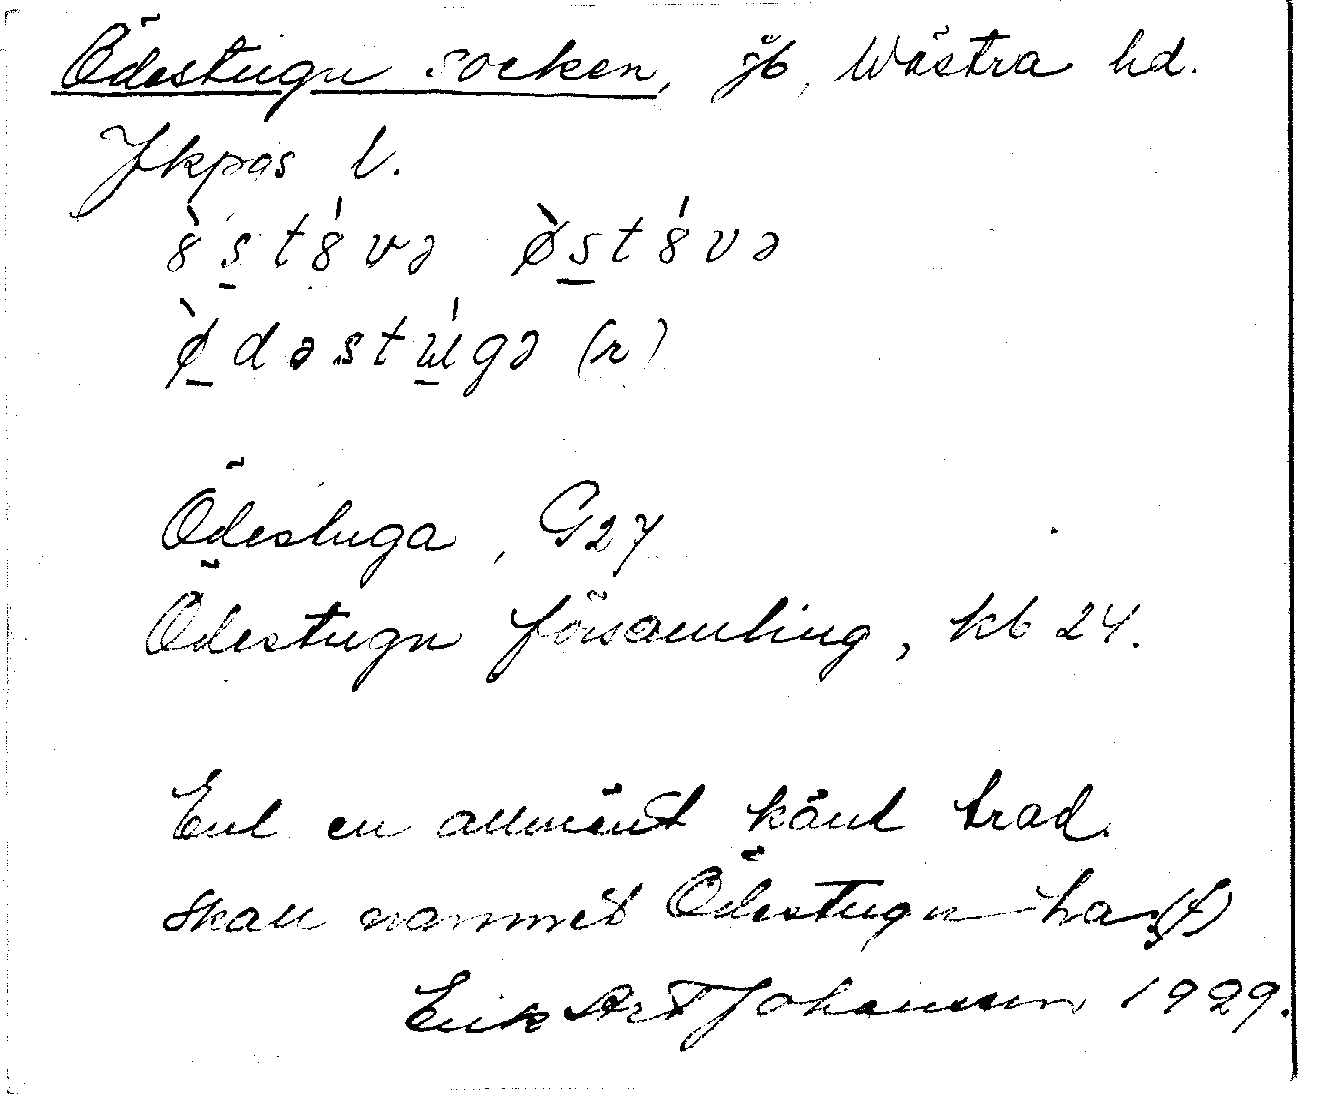 Ödestugu socken, jb, Wästra hd.
Jkpgs l.
8̀st8́və ø̀st8́və
ø̀dəstúgə (r)
Ödestuga, G27
Ödestugu församling, kb 24.
Enl en allmänt känd trad.
skall namnet Ödestugu ha (f)
Erik Art Johansson 1929.